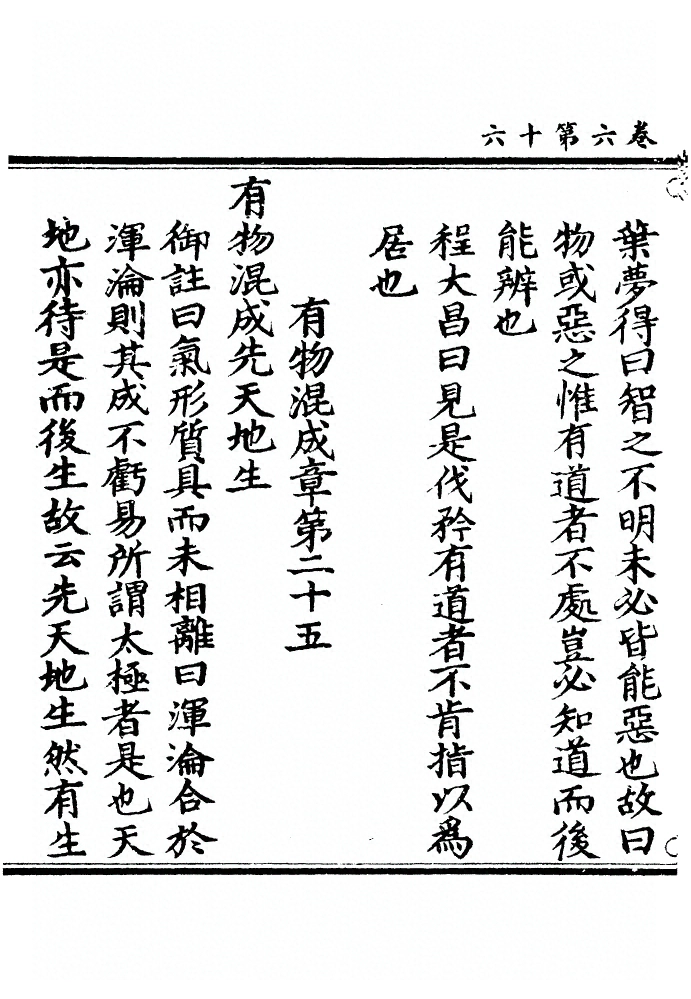 卷六第十六
葉夢得曰智之不明未必皆能惡也故曰
物或惡之惟有道者不處豈必知道而後
能辨也
程大昌曰見是伐矜有道者不肯指以爲
居也
有物混成章第二十五
有物混成先天地生
御註曰氣形質具而未相離曰渾淪合於
渾淪則其成不虧易所謂太極者是也天
地亦待是而後生故云先天地生然有生